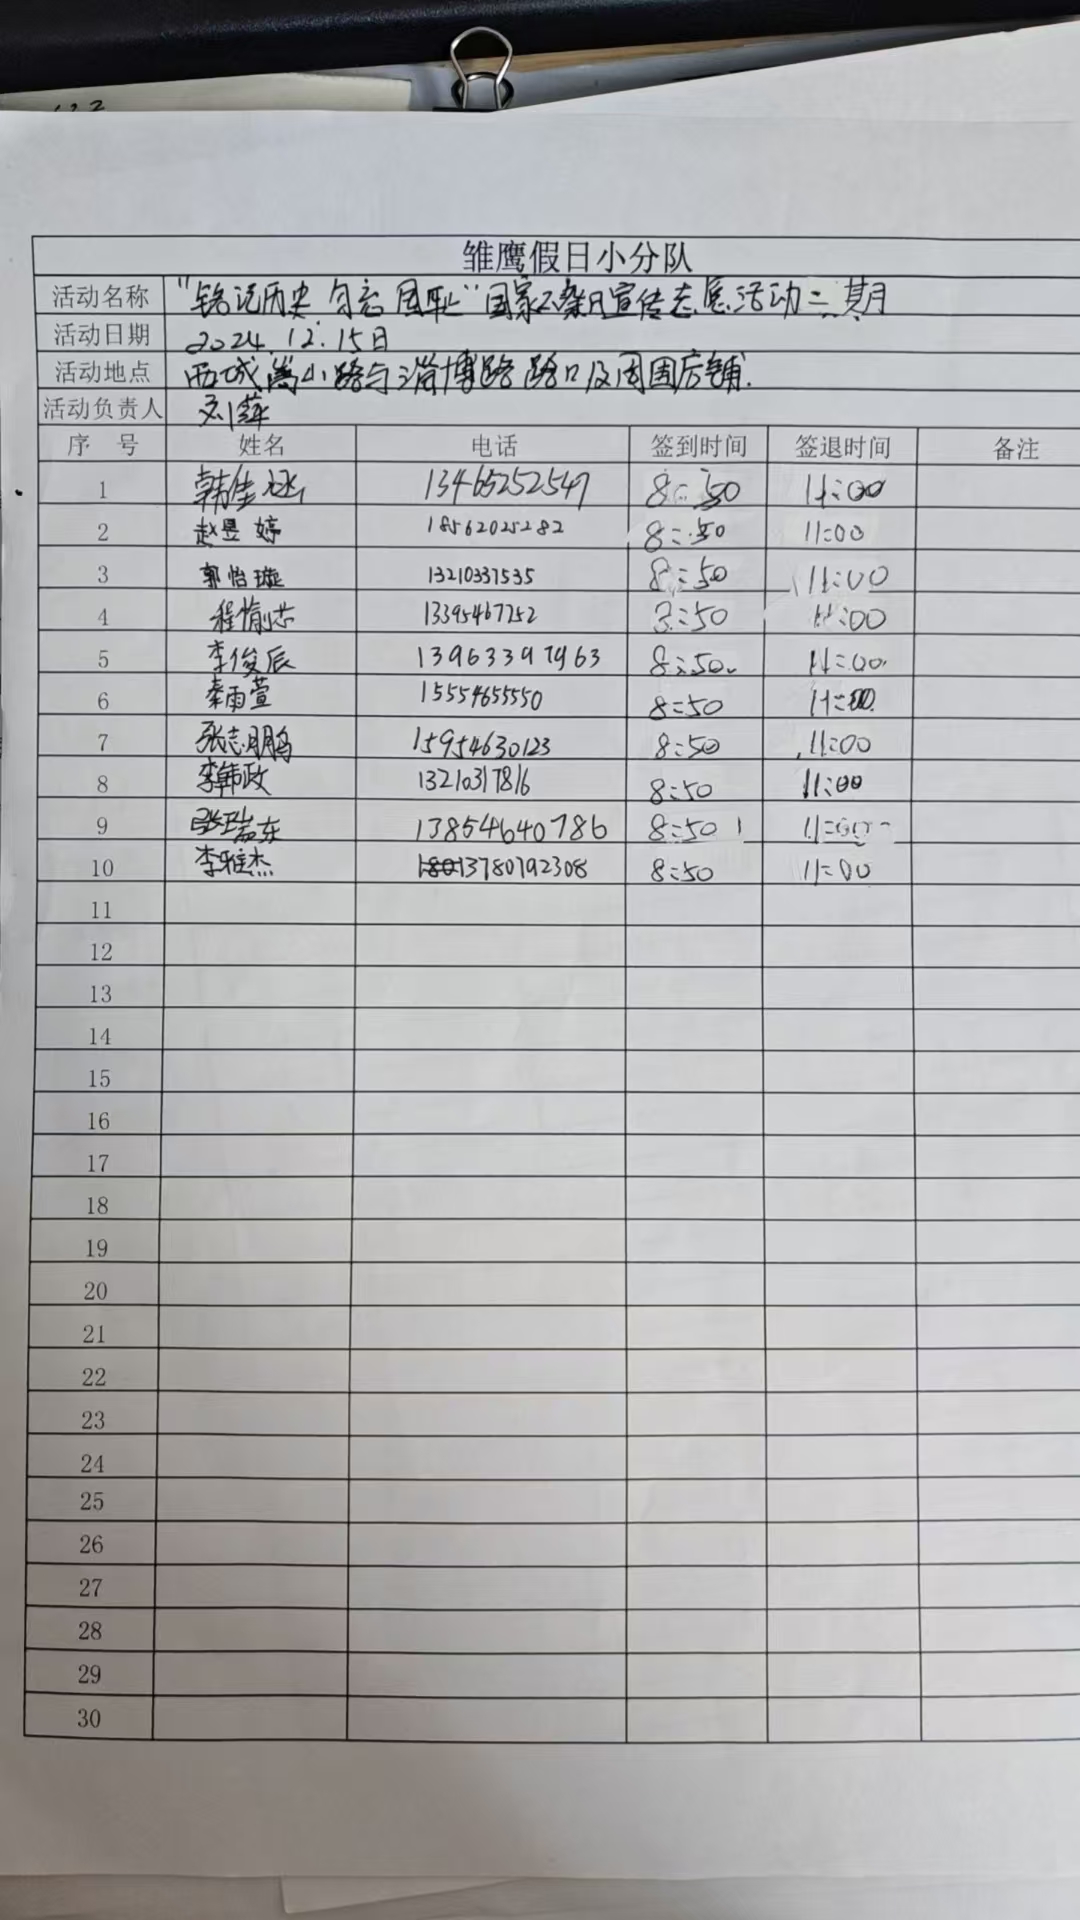 123
雏鹰假日小分队
活动名称 "铭记历史 勿忘国耻"国家公祭日宣传志愿活动二期
活动日期 2024.12.15日
活动地点 西城嵩山路与淄博路路口及周围店铺.
活动负责人 刘萍
序号 姓名 电话 签到时间 签退时间 备注
1 韩佳涵 13465252547 8:50 11:00
2 赵昱婷 18562025282 8:50 11:00
3 郭怡璇 13210337535 8:50 11:00
4 程愉芯 13395467252 8:50 11:00
5 李俊辰 13963397963 8:50 11:00
6 秦雨萱 15554655550 8:50 11:00
7 张志鹏 15954630123 8:50 11:00
8 李韩政 13210317816 8:50 11:00
9 张瑞东 13854640786 8:50 11:00
10 李雅杰 13780792308 8:50 11:00
11
12
13
14
15
16
17
18
19
20
21
22
23
24
25
26
27
28
29
30